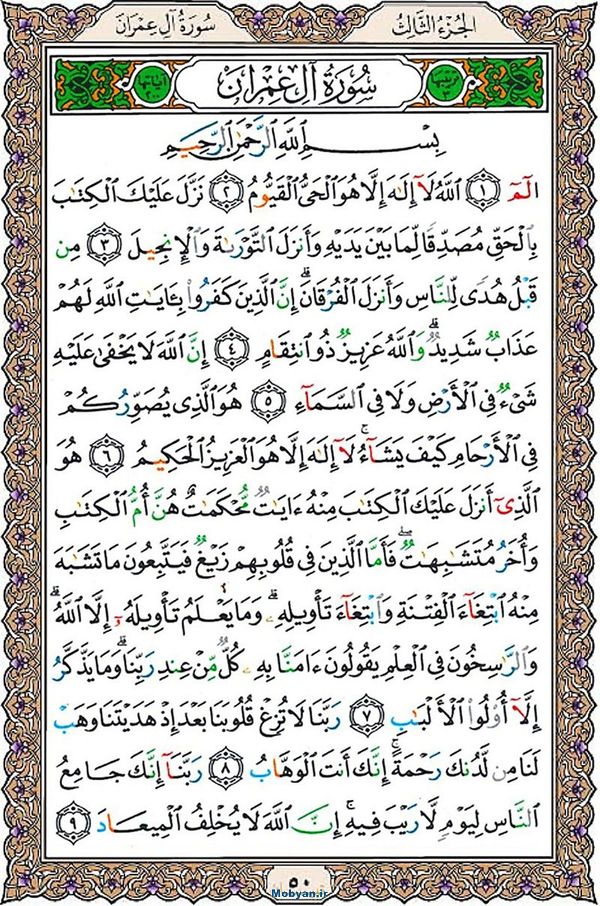 الجزء الثالث
سورة آل عمران
سُورَةُ آلِ عِمْرَان
بِسْمِ ٱللَّهِ ٱلرَّحْمَٰنِ ٱلرَّحِيمِ
الٓمٓ ١ ٱللَّهُ لَآ إِلَٰهَ إِلَّا هُوَ ٱلْحَىُّ ٱلْقَيُّومُ ٢ نَزَّلَ عَلَيْكَ ٱلْكِتَٰبَ
بِٱلْحَقِّ مُصَدِّقًا لِّمَا بَيْنَ يَدَيْهِ وَأَنزَلَ ٱلتَّوْرَىٰةَ وَٱلْإِنجِيلَ ٣ مِن
قَبْلُ هُدًى لِّلنَّاسِ وَأَنزَلَ ٱلْفُرْقَانَ ۗ إِنَّ ٱلَّذِينَ كَفَرُوا۟ بِـَٔايَٰتِ ٱللَّهِ لَهُمْ
عَذَابٌ شَدِيدٌ ۗ وَٱللَّهُ عَزِيزٌ ذُو ٱنتِقَامٍ ٤ إِنَّ ٱللَّهَ لَا يَخْفَىٰ عَلَيْهِ
شَىْءٌ فِى ٱلْأَرْضِ وَلَا فِى ٱلسَّمَآءِ ٥ هُوَ ٱلَّذِى يُصَوِّرُكُمْ
فِى ٱلْأَرْحَامِ كَيْفَ يَشَآءُ ۚ لَآ إِلَٰهَ إِلَّا هُوَ ٱلْعَزِيزُ ٱلْحَكِيمُ ٦ هُوَ
ٱلَّذِىٓ أَنزَلَ عَلَيْكَ ٱلْكِتَٰبَ مِنْهُ ءَايَٰتٌ مُّحْكَمَٰتٌ هُنَّ أُمُّ ٱلْكِتَٰبِ
وَأُخَرُ مُتَشَٰبِهَٰتٌ ۖ فَأَمَّا ٱلَّذِينَ فِى قُلُوبِهِمْ زَيْغٌ فَيَتَّبِعُونَ مَا تَشَٰبَهَ
مِنْهُ ٱبْتِغَآءَ ٱلْفِتْنَةِ وَٱبْتِغَآءَ تَأْوِيلِهِۦ ۗ وَمَا يَعْلَمُ تَأْوِيلَهُۥٓ إِلَّا ٱللَّهُ ۗ
وَٱلرَّٰسِخُونَ فِى ٱلْعِلْمِ يَقُولُونَ ءَامَنَّا بِهِۦ كُلٌّ مِّنْ عِندِ رَبِّنَا ۗ وَمَا يَذَّكَّرُ
إِلَّآ أُو۟لُوا۟ ٱلْأَلْبَٰبِ ٧ رَبَّنَا لَا تُزِغْ قُلُوبَنَا بَعْدَ إِذْ هَدَيْتَنَا وَهَبْ
لَنَا مِن لَّدُنكَ رَحْمَةً ۚ إِنَّكَ أَنتَ ٱلْوَهَّابُ ٨ رَبَّنَآ إِنَّكَ جَامِعُ
ٱلنَّاسِ لِيَوْمٍ لَّا رَيْبَ فِيهِ ۚ إِنَّ ٱللَّهَ لَا يُخْلِفُ ٱلْمِيعَادَ ٩
٥٠
Mobyan.ir